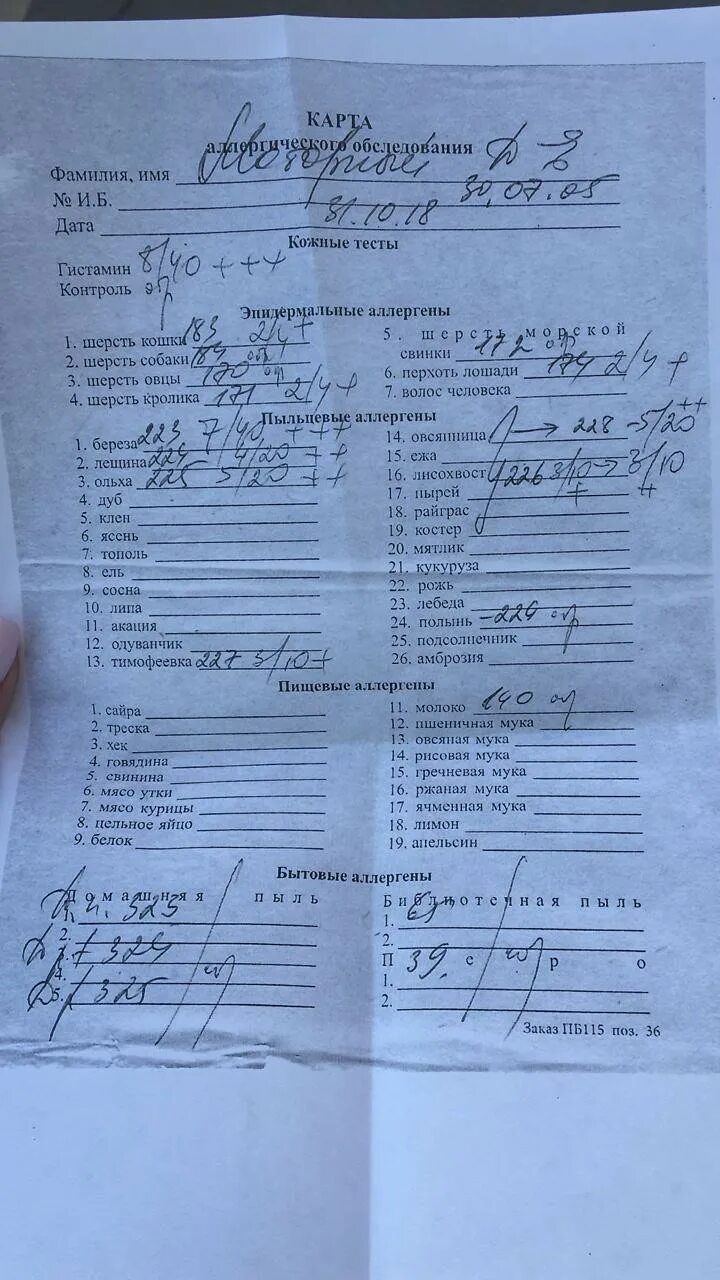 КАРТА
аллергического обследования
Фамилия, имя Моторный Д
№ И.Б. 30.07.05
Дата 31.10.18
Кожные тесты
Гистамин 8/40 +++
Контроль
Эпидермальные аллергены
1. шерсть кошки 183 2/4 +
2. шерсть собаки отр
3. шерсть овцы 170 отр
4. шерсть кролика 171 2/4 +
5. шерсть морской
свинки 172 отр
6. перхоть лошади 174 2/4 +
7. волос человека
Пыльцевые аллергены
1. береза 223 7/40 +++
2. лещина 224 4/20 ++
3. ольха 225 5/20 ++
4. дуб
5. клен
6. ясень
7. тополь
8. ель
9. сосна
10. липа
11. акация
12. одуванчик
13. тимофеевка 227 3/10 +
14. овсянница → 228 - 5/20 ++
15. ежа
16. лисохвост 226 3/10 → 3/10
17. пырей + +
18. райграс
19. костер
20. мятлик
21. кукуруза
22. рожь
23. лебеда
24. полынь - 229 отр
25. подсолнечник
26. амброзия
Пищевые аллергены
1. сайра
2. треска
3. хек
4. говядина
5. свинина
6. мясо утки
7. мясо курицы
8. цельное яйцо
9. белок
11. молоко 140 отр
12. пшеничная мука
13. овсяная мука
14. рисовая мука
15. гречневая мука
16. ржаная мука
17. ячменная мука
18. лимон
19. апельсин
Бытовые аллергены
Домашняя пыль
1. 323
2.
3. 324
4.
5. 325
Библиотечная пыль
1.
2.
П 39. е р о
1.
2.
Заказ ПБ115 поз. 36